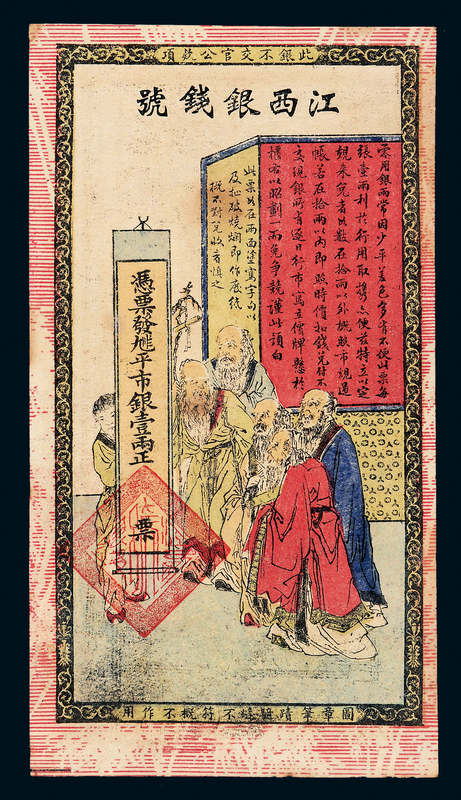 此銀不交官公欵項
江西銀錢號
零用銀兩常因少平差色多有不便此票每
張壹兩利於行用取攜亦便茲特立以定
規來兌者以數在拾兩以外概照市規過
帳若在拾兩以內即照時價扣錢兌付不
支現銀所有逐日行市寫立價牌懸於
櫃右以昭劃一而免爭競謹此預白
此票如在兩面塗寫字句以
及扯破燒爛即作廢紙
概不對兌收者慎之
憑票發平市銀壹兩正
票
圖章筆蹟騎縫不符概不作用